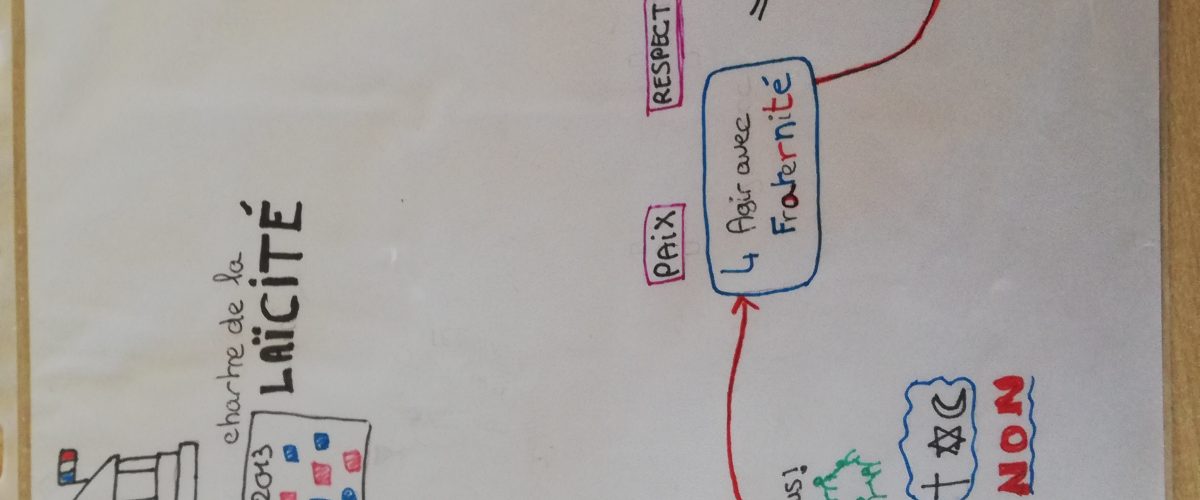 2013
chartre de la
LAÏCITÉ
PAIX
RESPECT
4 Agir avec
Fraternité
NON